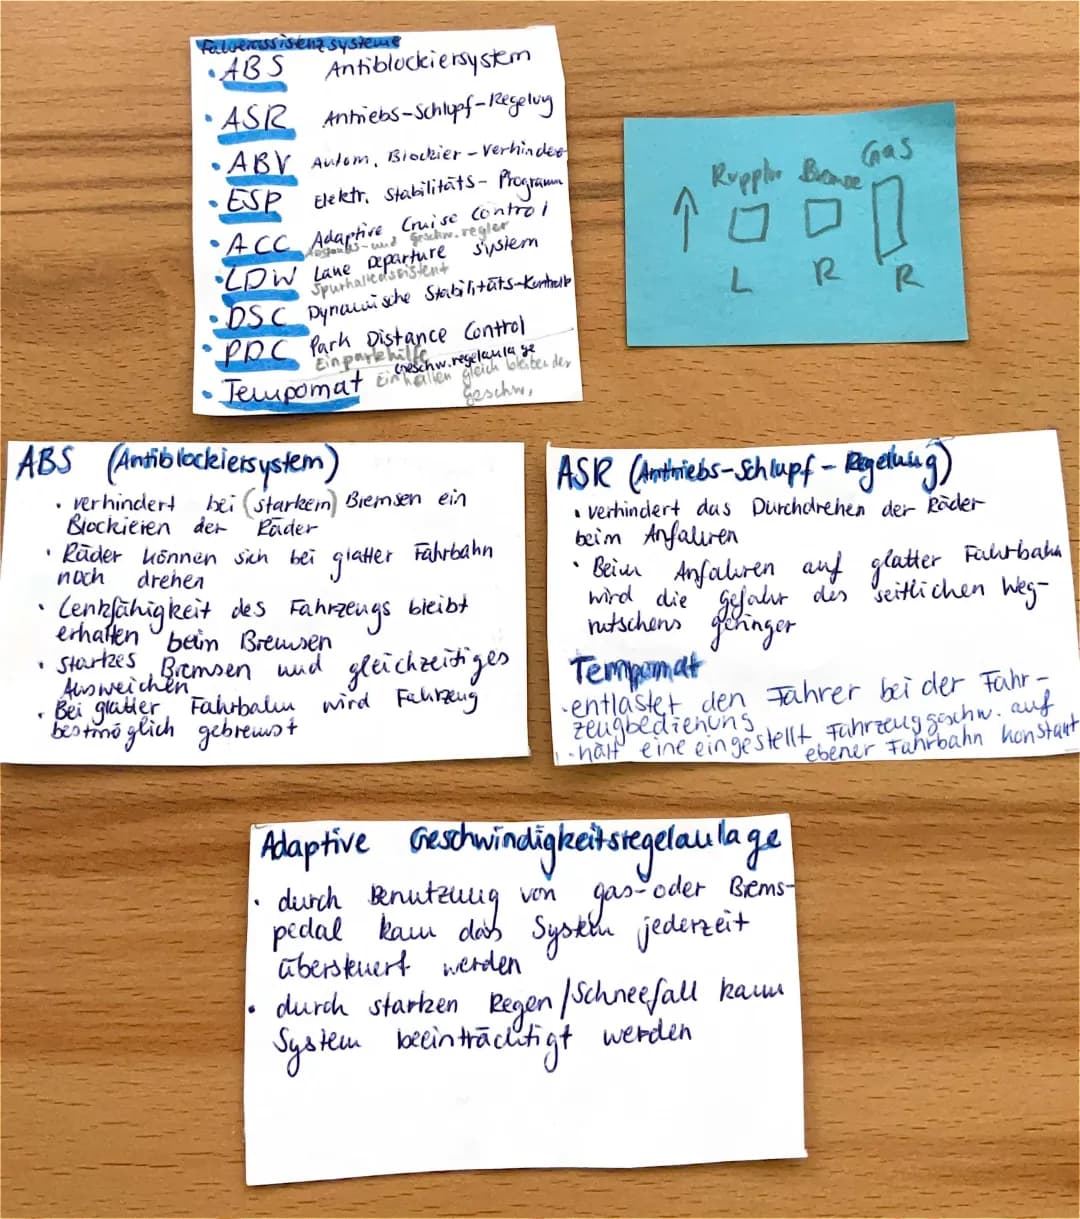 Fahrerassistenzsysteme
• ABS Antiblockiersystem
• ASR Antriebs-Schlupf-Regelung
• ABV Autom. Blockier-Verhinderer
• ESP Elektr. Stabilitäts-Programm
• ACC Adaptive Cruise Control
Abstands- und Geschw.regler
• LDW Lane Departure System
Spurhalteassistent
• DSC Dynamische Stabilitäts-Kontrolle
• PDC Park Distance Control
Einparkhilfe
Geschw.regelanlage
• Tempomat Einhalten gleich bleibender
Geschw.
Gas
Kupplu Bremse
↑
L R R
ABS (Antiblockiersystem)
• verhindert bei (starkem) Bremsen ein
Blockieren der Räder
• Räder können sich bei glatter Fahrbahn
noch drehen
• Lenkfähigkeit des Fahrzeugs bleibt
erhalten beim Bremsen
• Starkes Bremsen und gleichzeitiges
Ausweichen
• Bei glatter Fahrbahn wird Fahrzeug
bestmöglich gebremst
ASR (Antriebs-Schlupf-Regelung)
• verhindert das Durchdrehen der Räder
beim Anfahren
• Beim Anfahren auf glatter Fahrbahn
wird die Gefahr des seitlichen Weg-
rutschens geringer
Tempomat
- entlastet den Fahrer bei der Fahr-
zeugbedienung
- hält eine eingestellt Fahrzeuggeschw. auf
ebener Fahrbahn konstant
Adaptive Geschwindigkeitsregelanlage
• durch Benutzung von gas- oder Brems-
pedal kann das System jederzeit
übersteuert werden
• durch starken Regen/Schneefall kann
System beeinträchtigt werden